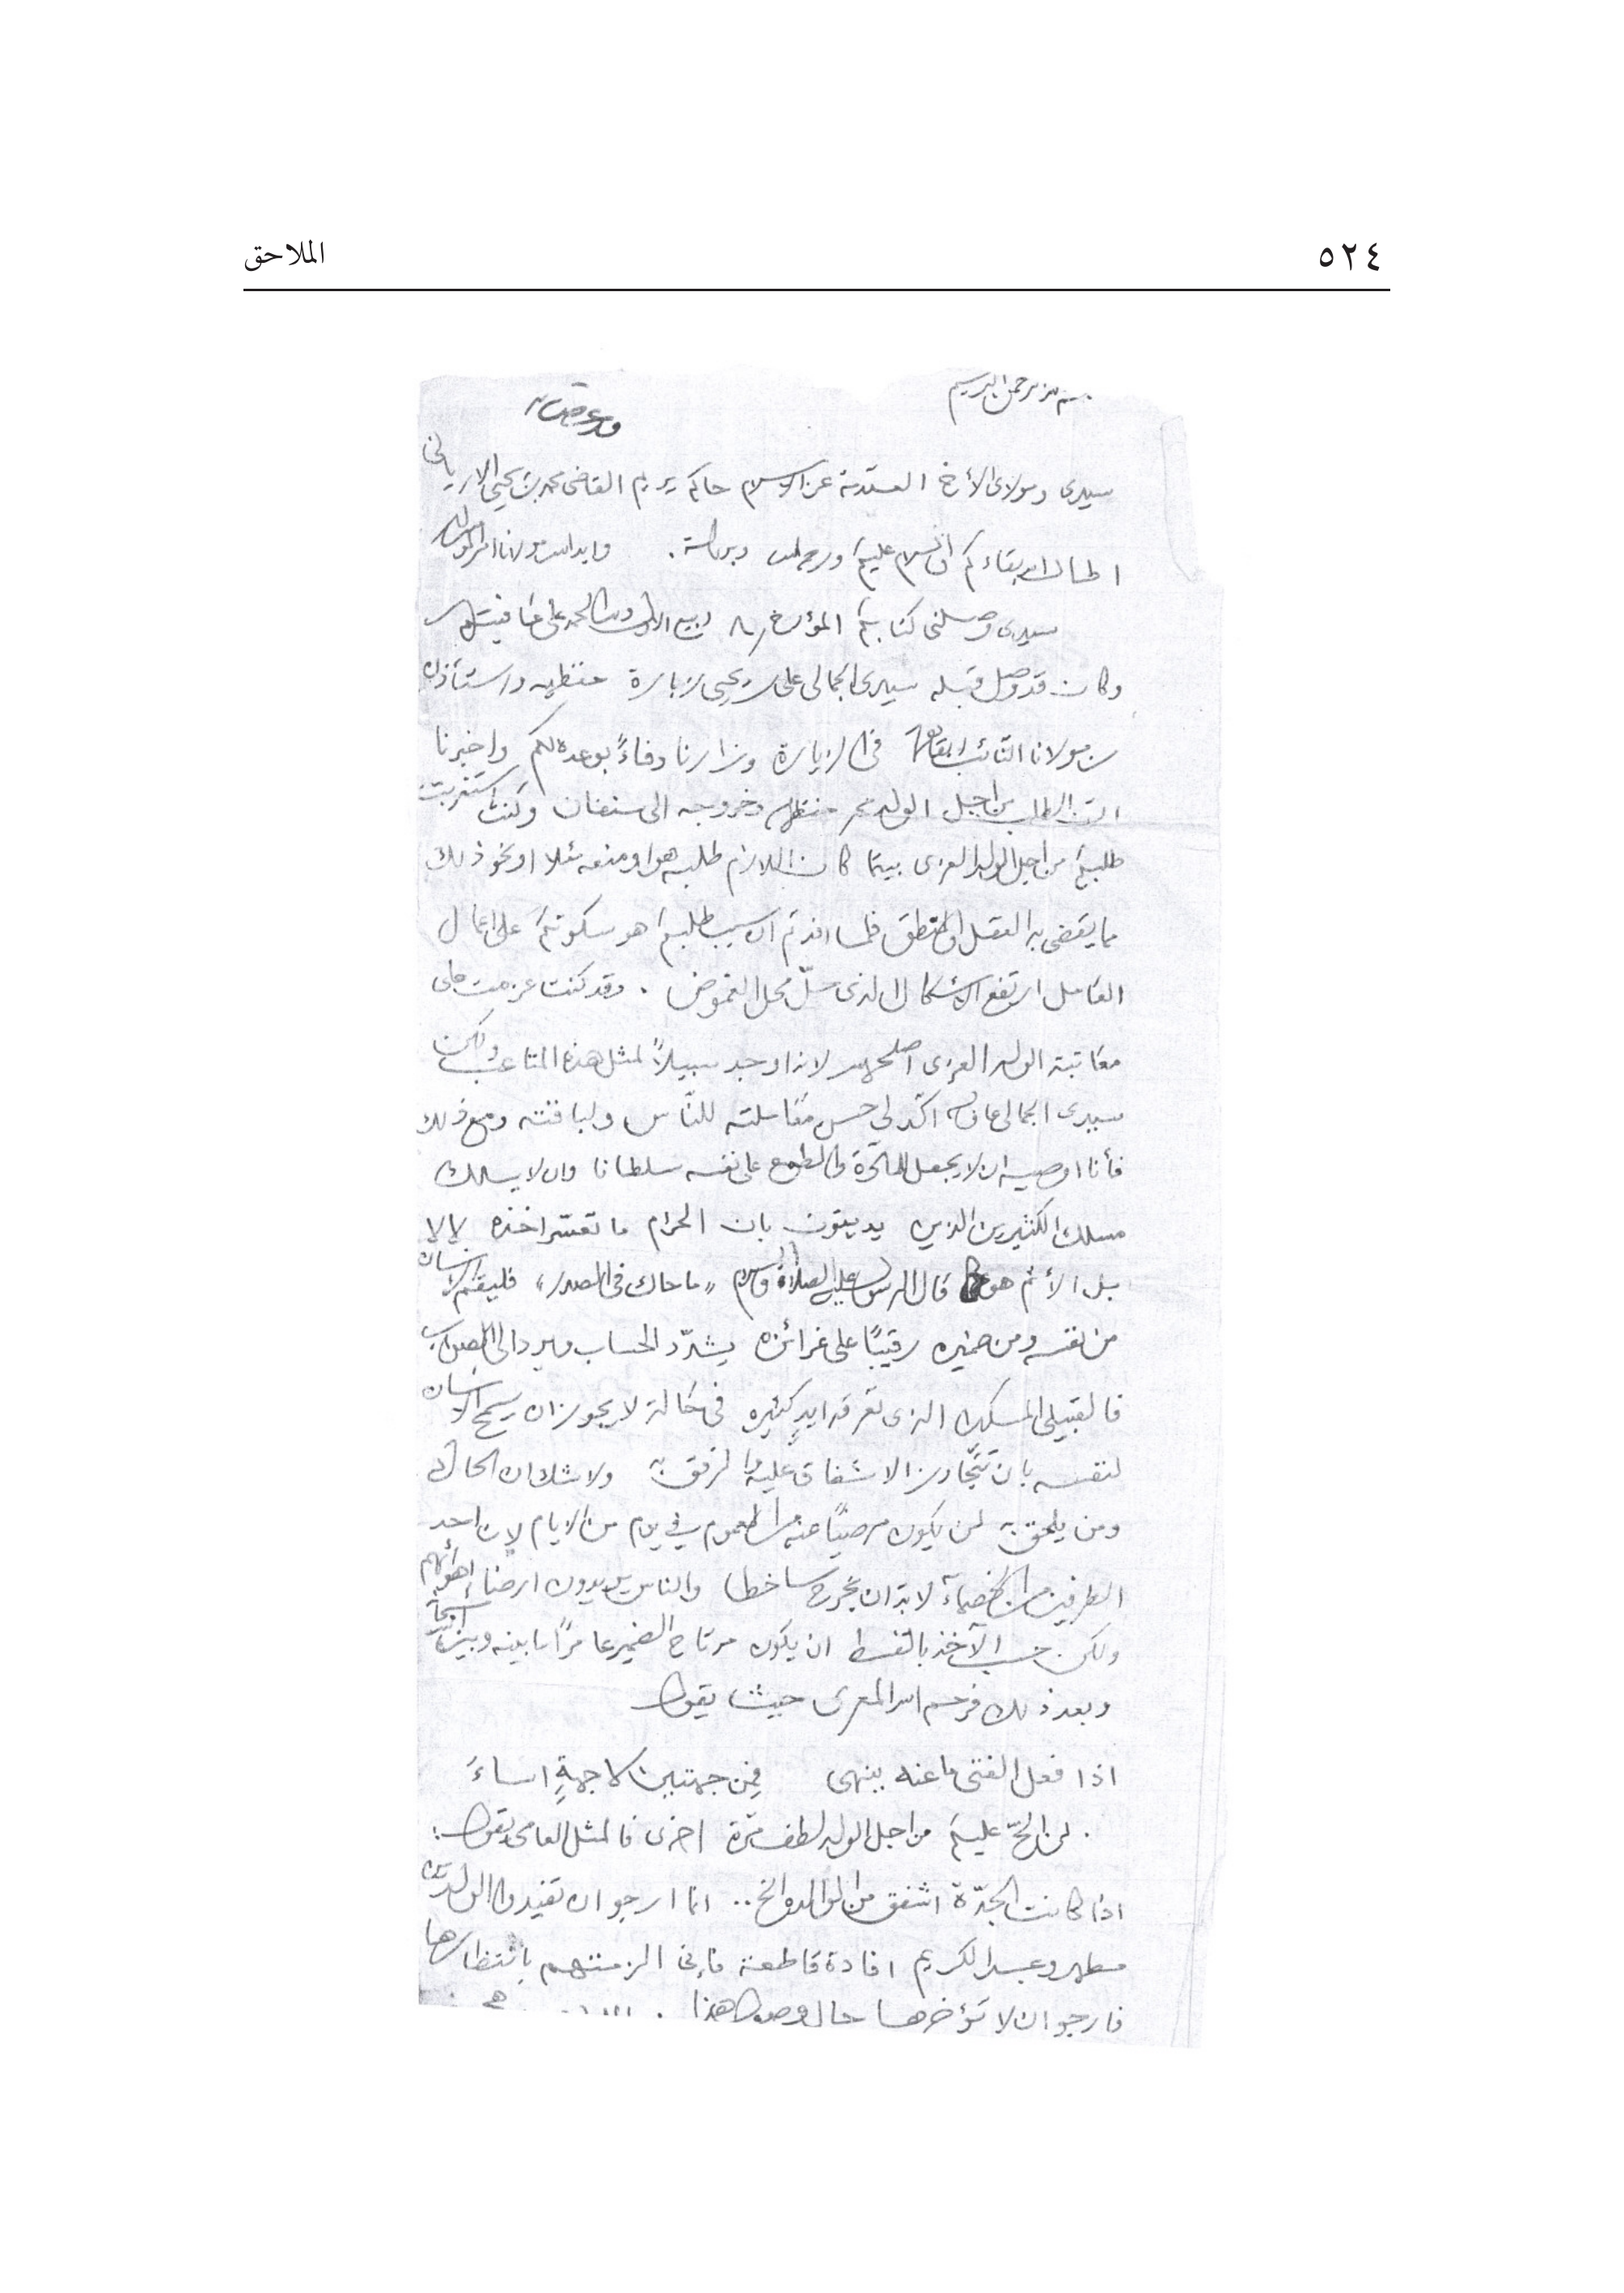 ٥٢٤
الملاحق
بسم الله الرحمن الرحيم
سيدي ومولاي الأخ العلامة عز الاسلام حاكم يريم القاضي محمد بن يحيى الارياني
اطال الله بقاءكم السلام عليكم ورحمة الله وبركاته. وايد الله مولانا امير المؤمنين
سيدي وصلني كتابكم المؤرخ ٨ ربيع الاول ولله الحمد على عافيتكم
وكان قد وصل قبله سيدي الجمالي علي بن يحيى زبارة حفظه الله واستأذن
من مولانا النائب في الزيارة وزارنا وفاءً بوعده لكم واخبرنا
الطلب من اجل الولد حفظه الله وخروجه الى سنفان وكنت استغربت
طلبكم من اجل الولد العزي بينما كان اللازم طلبه هو او منعه مثلا او نحو ذلك
مما يقضي به العقل او المنطق فلما افدتم ان سبب طلبكم هو سكوتكم على اعمال
العامل ارتفع الاشكال الذي حلّ محل الغموض. وقد كنت عزمت على
معاتبة الولد العزي اصلحه الله لانه اوجد سبيلاً لمثل هذه المتاعب ولكن
سيدي الجمالي عافاه الله اكّد لي حسن معاملته للنّاس ولباقته ومع ذلك
فأنا اوصيه ان لا يجعل للمادّة والطمع على نفسه سلطانا وان لا يسلك
مسلك الكثيرين الذين يدينون بان الحرام ما تعسّر اخذه لا لا
بل الأثم هو كما قال الرسول عليه الصلاة والسلام «ما حاك في الصدر» فليقم الانسان
من نفسه ومن ضميره رقيبًا على غرائزه يشدّد الحساب ويرد الى الصواب
فالقبيلي المسكين الذي تعرقه ايدٍ كثيره في حالة لا يجوز ان يسمح الانسان
لنفسه بان تتجاوز الاشفاق عليه والرفق به ولا شك ان الحاكم
ومن يلحق به لن يكون مرضيًا عنه من العموم في يوم من الايام لان احد
الطرفين من الخصماء لا بد ان يخرج ساخطا والناس يريدون ارضاء اهوائهم
ولكن حسب الآخذ بالقسط ان يكون مرتاح الضمير عامرًا ما بينه وبين الله سبحانه
وبعد ذلك فرحم الله المعري حيث يقول
اذا فعل الفتى ما عنه ينهى فمن جهتين لا جهةٍ اساءَ
لن الحّ عليكم من اجل الولد لطف مرّة اخرى فالمثل العامي يقول:
اذا كانت الجدّة اشفق من الوالده الخ.. انما ارجو ان تفيدوا الولدين
مطهر وعبد الكريم افادة قاطعة فإني الزمتهم بانتظارها
فارجو ان لا تؤخرها حال وصول هذا.